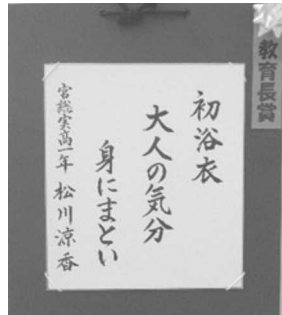 教育長賞
初浴衣
大人の気分
身にまとい
宮総実高一年 松川涼香